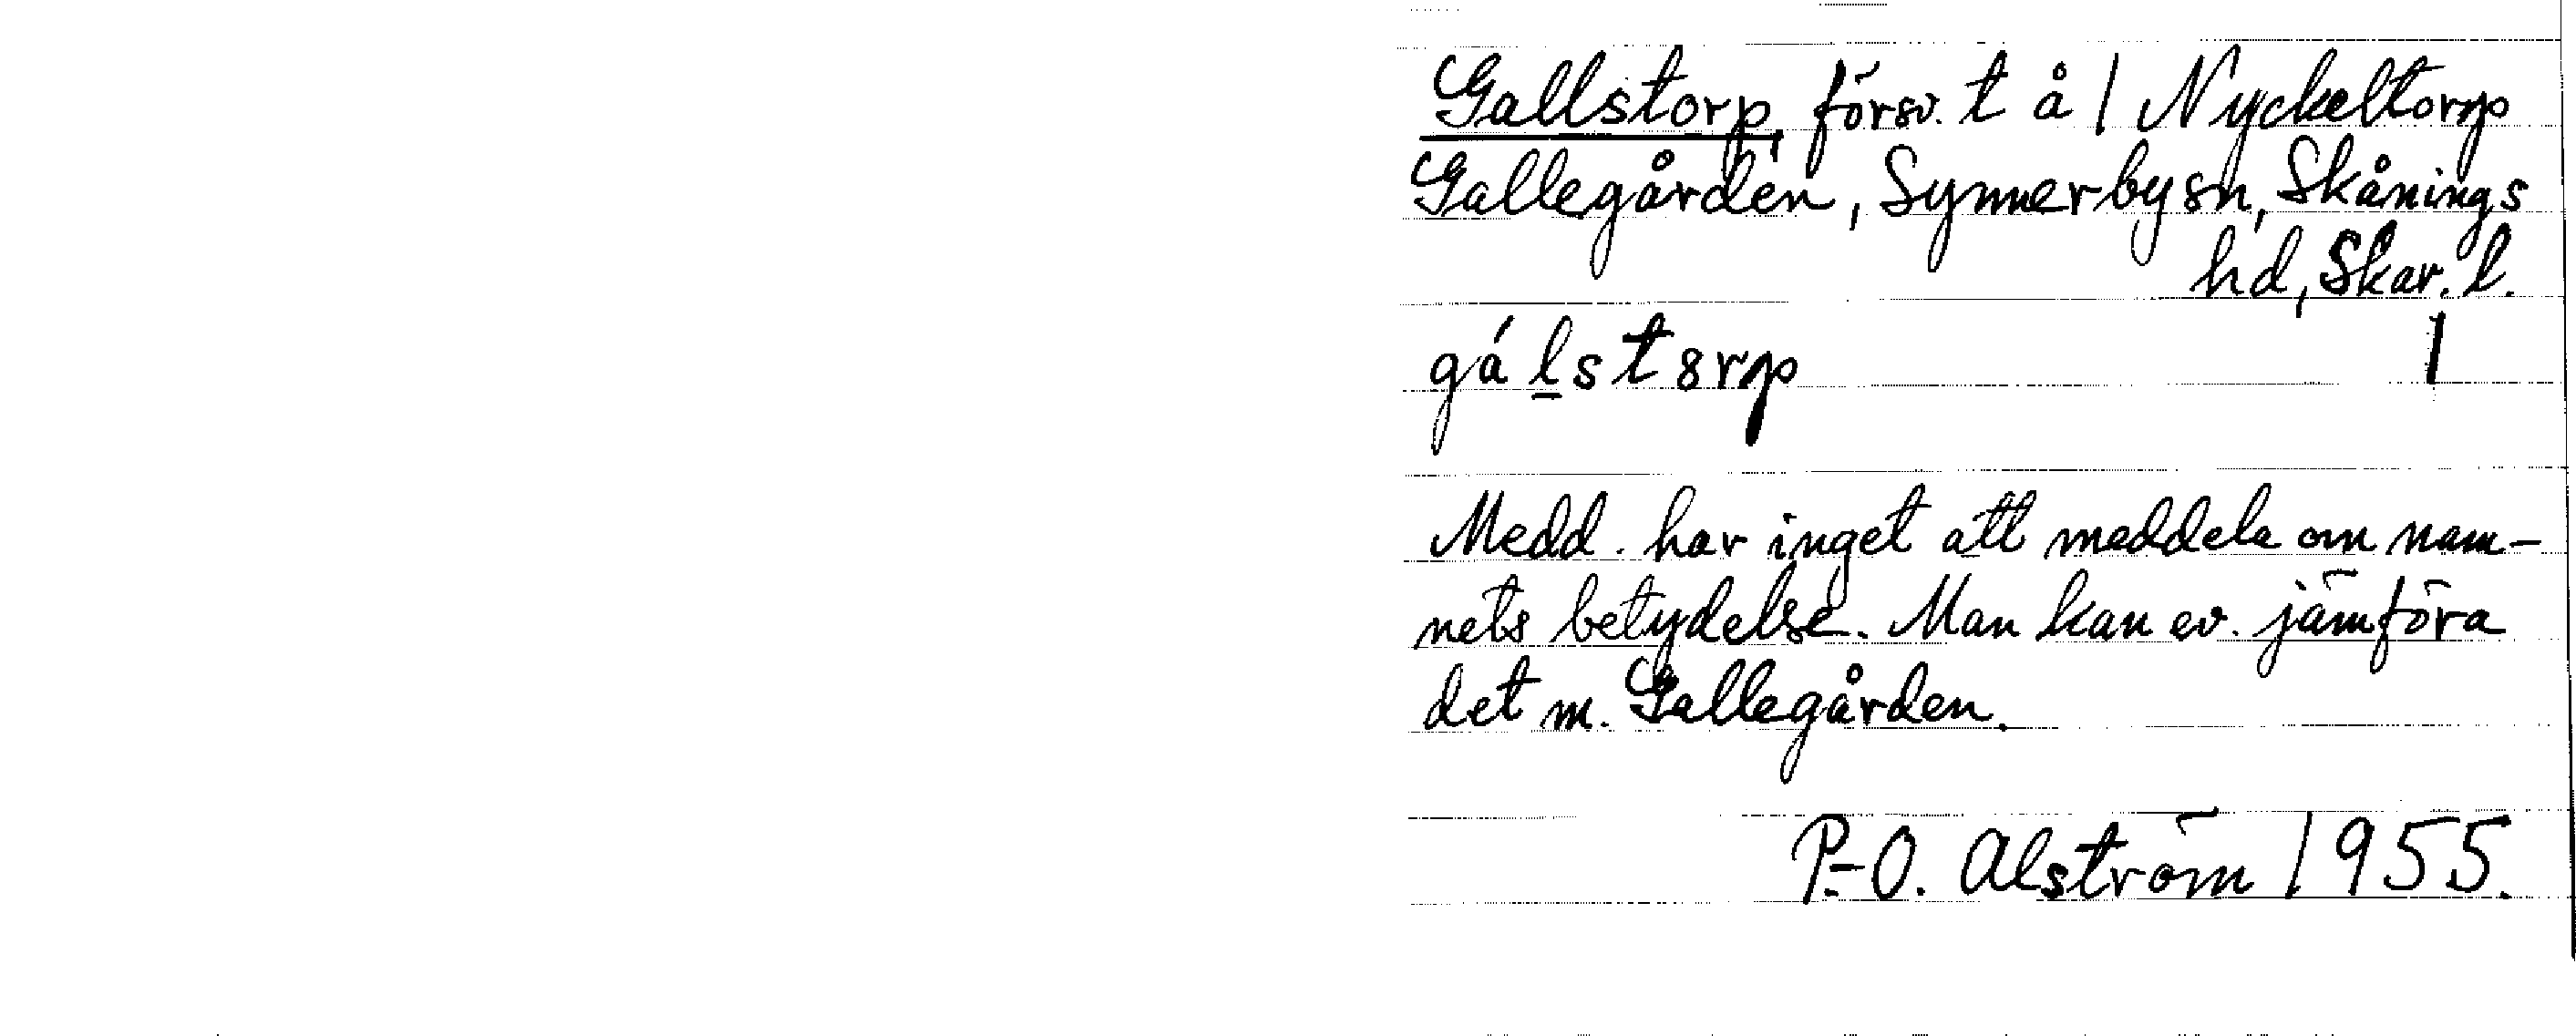 Gallstorp, försv. t å / Nyckeltorp
Gallegården, Synnerby sn, Skånings
hd, Skar. l.
gá l̲st8rp 1
Medd. har inget att meddela om nam-
nets betydelse. Man kan ev. jämföra
det m. Gallegården.
P.-O. Alström 1955.